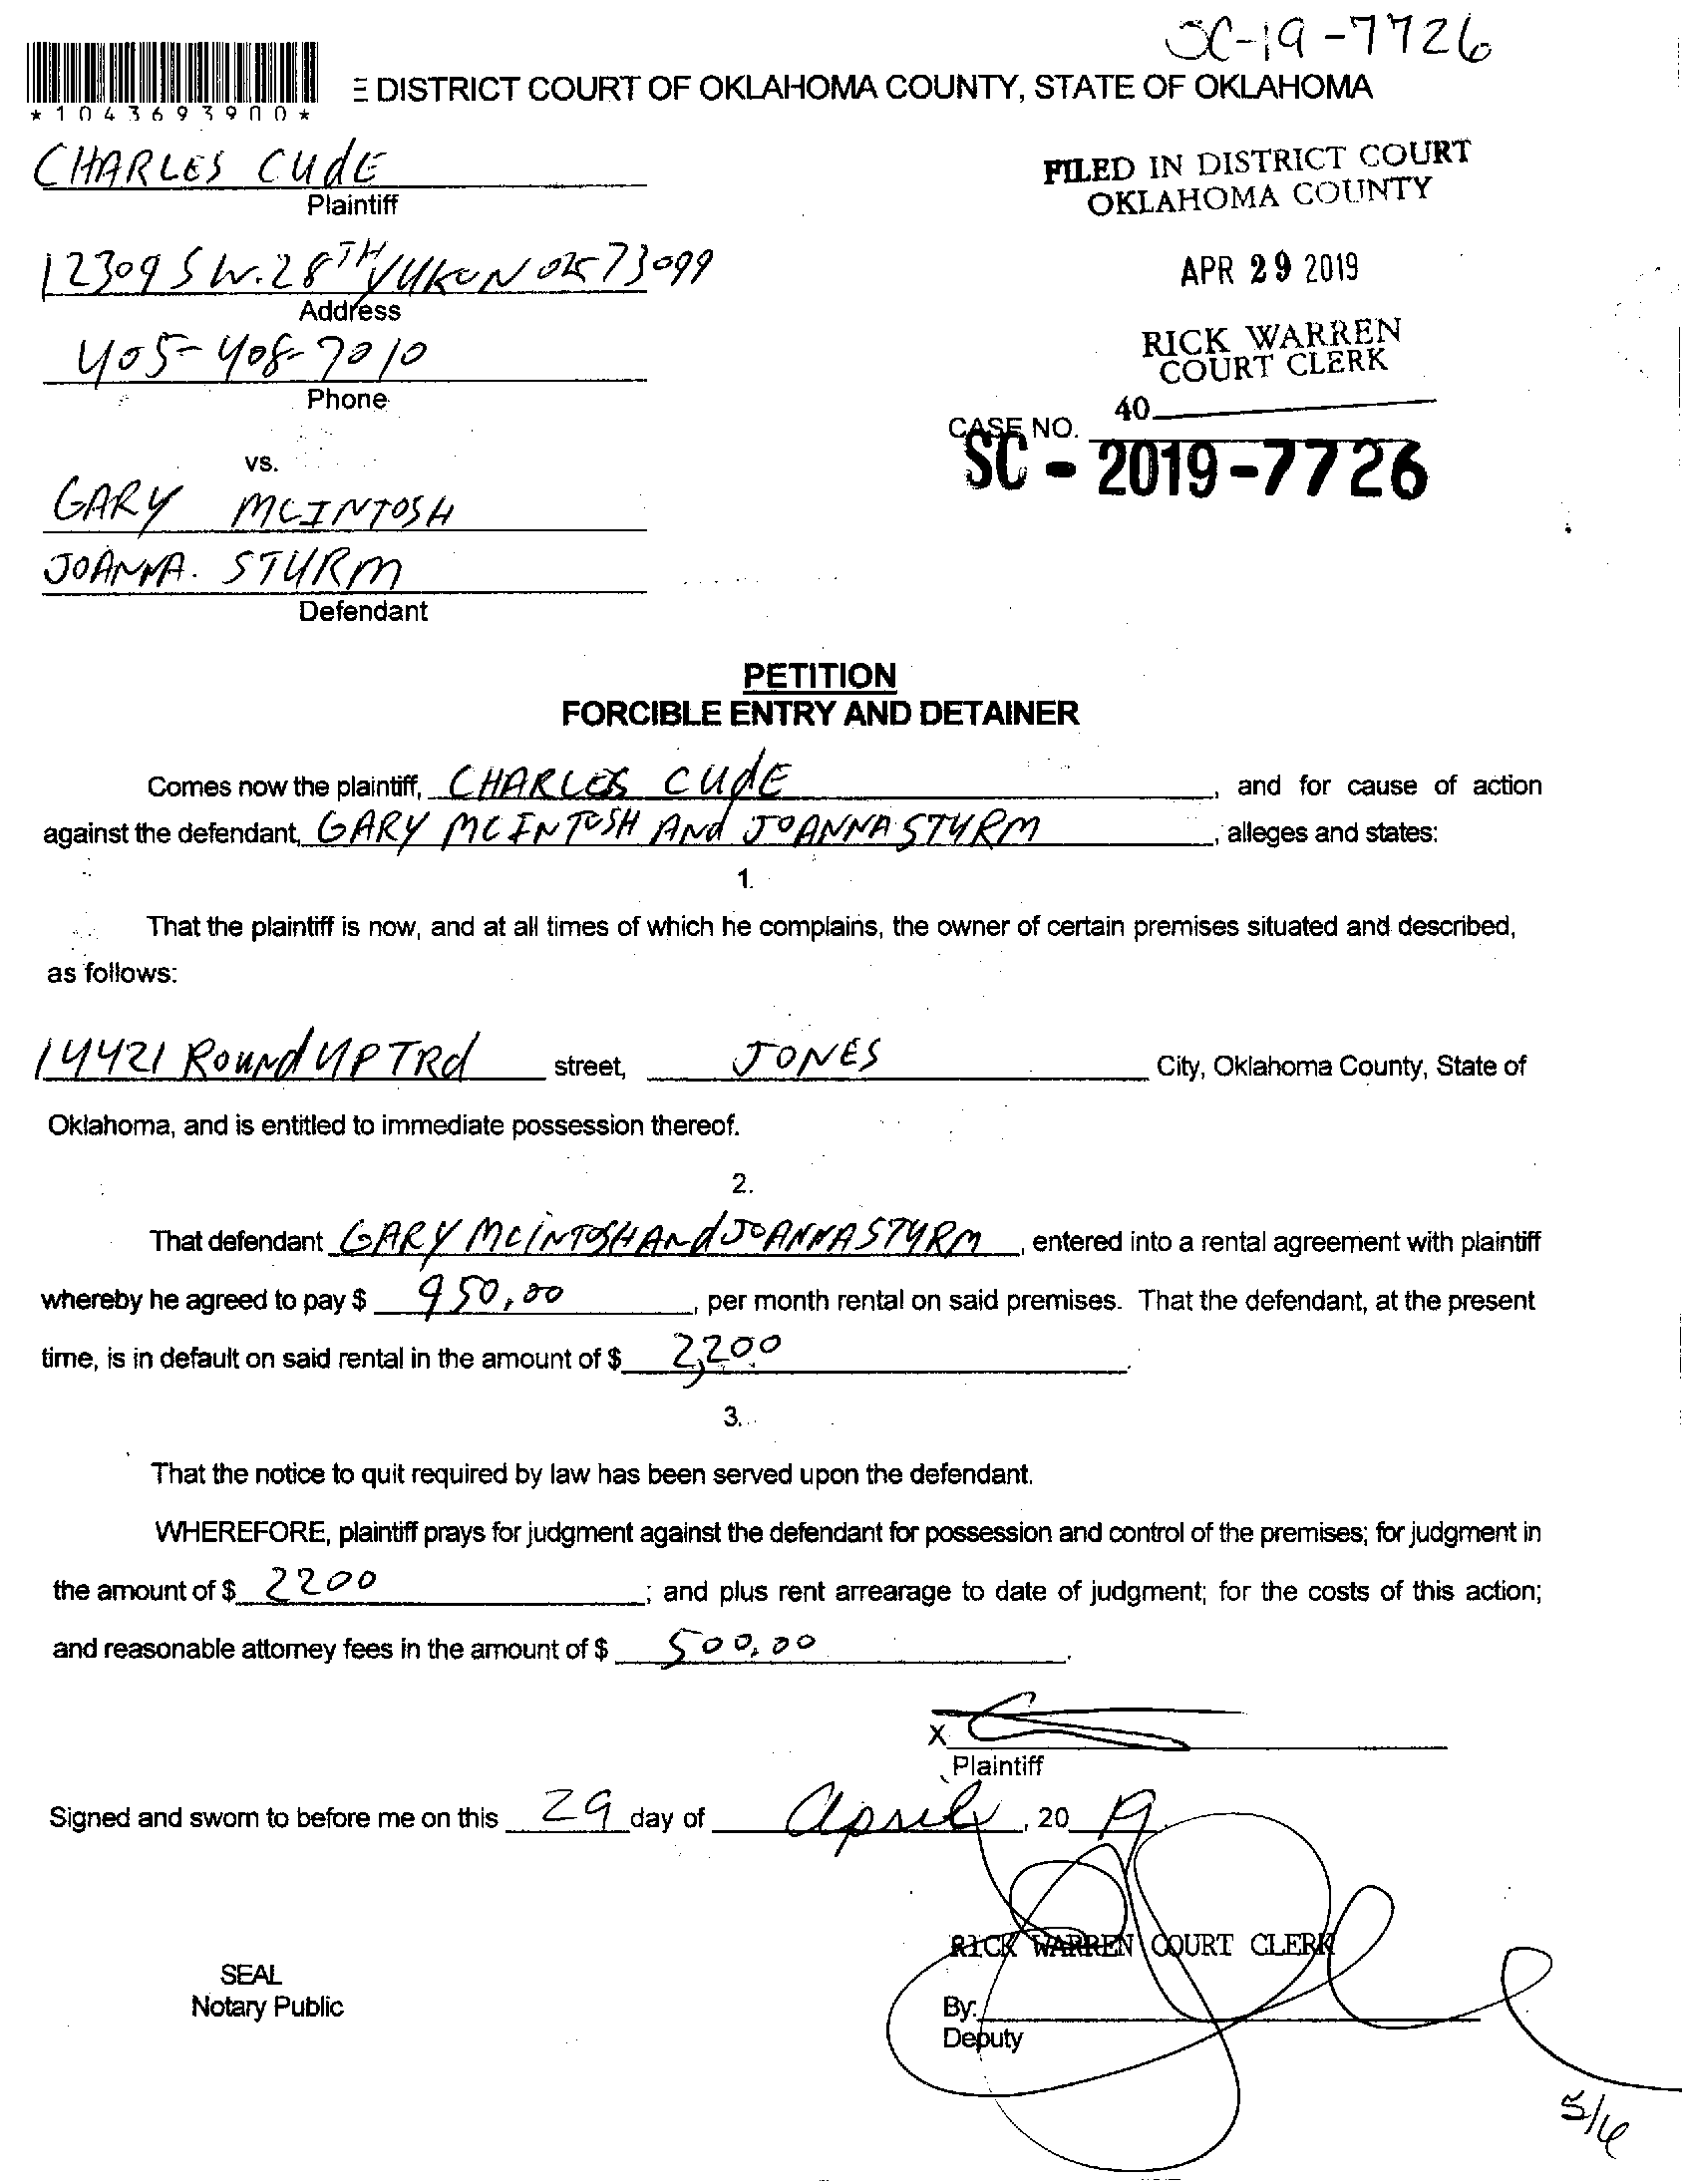 SC-19-7726
DISTRICT COURT OF OKLAHOMA COUNTY, STATE OF OKLAHOMA
*1043693900*
CHARLES CUdE
Plaintiff
FILED IN DISTRICT COURT
OKLAHOMA COUNTY
12309 S W. 28TH YUKON OK 73099
Address
APR 29 2019
405-408-7010
Phone
RICK WARREN
COURT CLERK
40
CASE NO.
SC - 2019-7726
vs.
GARY MCINTOSH
JOANNA. STURM
Defendant
PETITION
FORCIBLE ENTRY AND DETAINER
Comes now the plaintiff, CHARLES CUdE, and for cause of action
against the defendant, GARY MCINTOSH ANd JOANNA STURM, alleges and states:
1.
That the plaintiff is now, and at all times of which he complains, the owner of certain premises situated and described,
as follows:
14421 ROUNd UP TRd street, JONES City, Oklahoma County, State of
Oklahoma, and is entitled to immediate possession thereof.
2.
That defendant GARY MCINTOSH ANd JOANNA STURM, entered into a rental agreement with plaintiff
whereby he agreed to pay $ 950,00, per month rental on said premises. That the defendant, at the present
time, is in default on said rental in the amount of $ 2,200.
3.
That the notice to quit required by law has been served upon the defendant.
WHEREFORE, plaintiff prays for judgment against the defendant for possession and control of the premises; for judgment in
the amount of $ 2200; and plus rent arrearage to date of judgment; for the costs of this action;
and reasonable attorney fees in the amount of $ 500,00.
X
Plaintiff
Signed and sworn to before me on this 29 day of April, 20 19
RICK WARREN COURT CLERK
SEAL
Notary Public
By:
Deputy